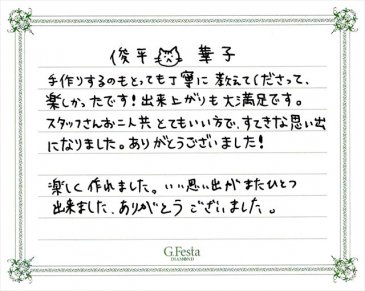 俊平 華子
手作りするのもとっても丁寧に教えてくださって、
楽しかったです!出来上がりも大満足です。
スタッフさんお二人共とてもいい方で、すてきな思い出
になりました。ありがとうございました!
楽しく作れました。いい思い出がまたひとつ
出来ました、ありがとうございました。
G.Festa
DIAMOND